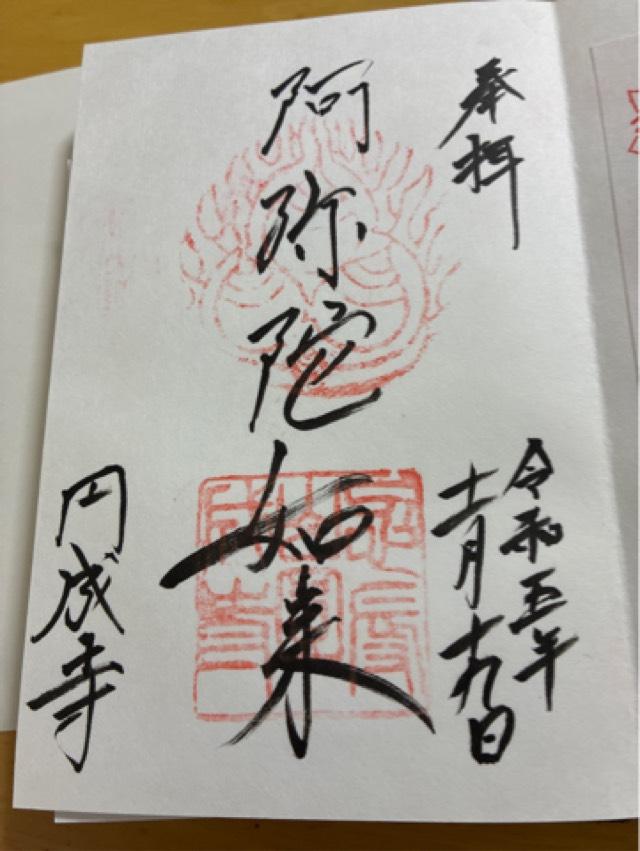 奉拝
令和五年
十一月十九日
阿弥陀如来
円成寺